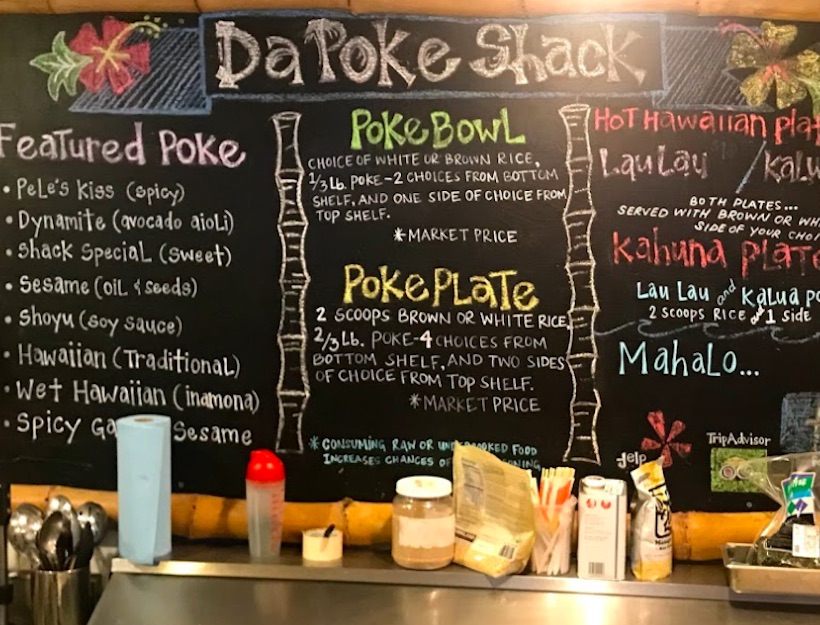 Da Poke Shack
Featured Poke
• Pele's Kiss (spicy)
• Dynamite (avocado aioli)
• Shack Special (sweet)
• Sesame (oil & seeds)
• Shoyu (soy sauce)
• Hawaiian (Traditional)
• Wet Hawaiian (inamona)
• Spicy Ga Sesame
Poke Bowl
CHOICE OF WHITE OR BROWN RICE,
1/3 lb. POKE-2 CHOICES FROM BOTTOM
SHELF, AND ONE SIDE OF CHOICE FROM
TOP SHELF.
*MARKET PRICE
Poke Plate
2 SCOOPS BROWN OR WHITE RICE,
2/3 lb. POKE-4 CHOICES FROM
BOTTOM SHELF, AND TWO SIDES
OF CHOICE FROM TOP SHELF.
*MARKET PRICE
* CONSUMING RAW OR UNDERCOOKED FOOD
INCREASES CHANCES OF
Hot Hawaiian Plat
Lau Lau / Kalu
BOTH PLATES...
SERVED WITH BROWN OR WH
SIDE OF YOUR CHOI
Kahuna Plate
Lau Lau and Kalua Po
2 SCOOPS RICE & 1 Side
Mahalo...
yelp
TripAdvisor